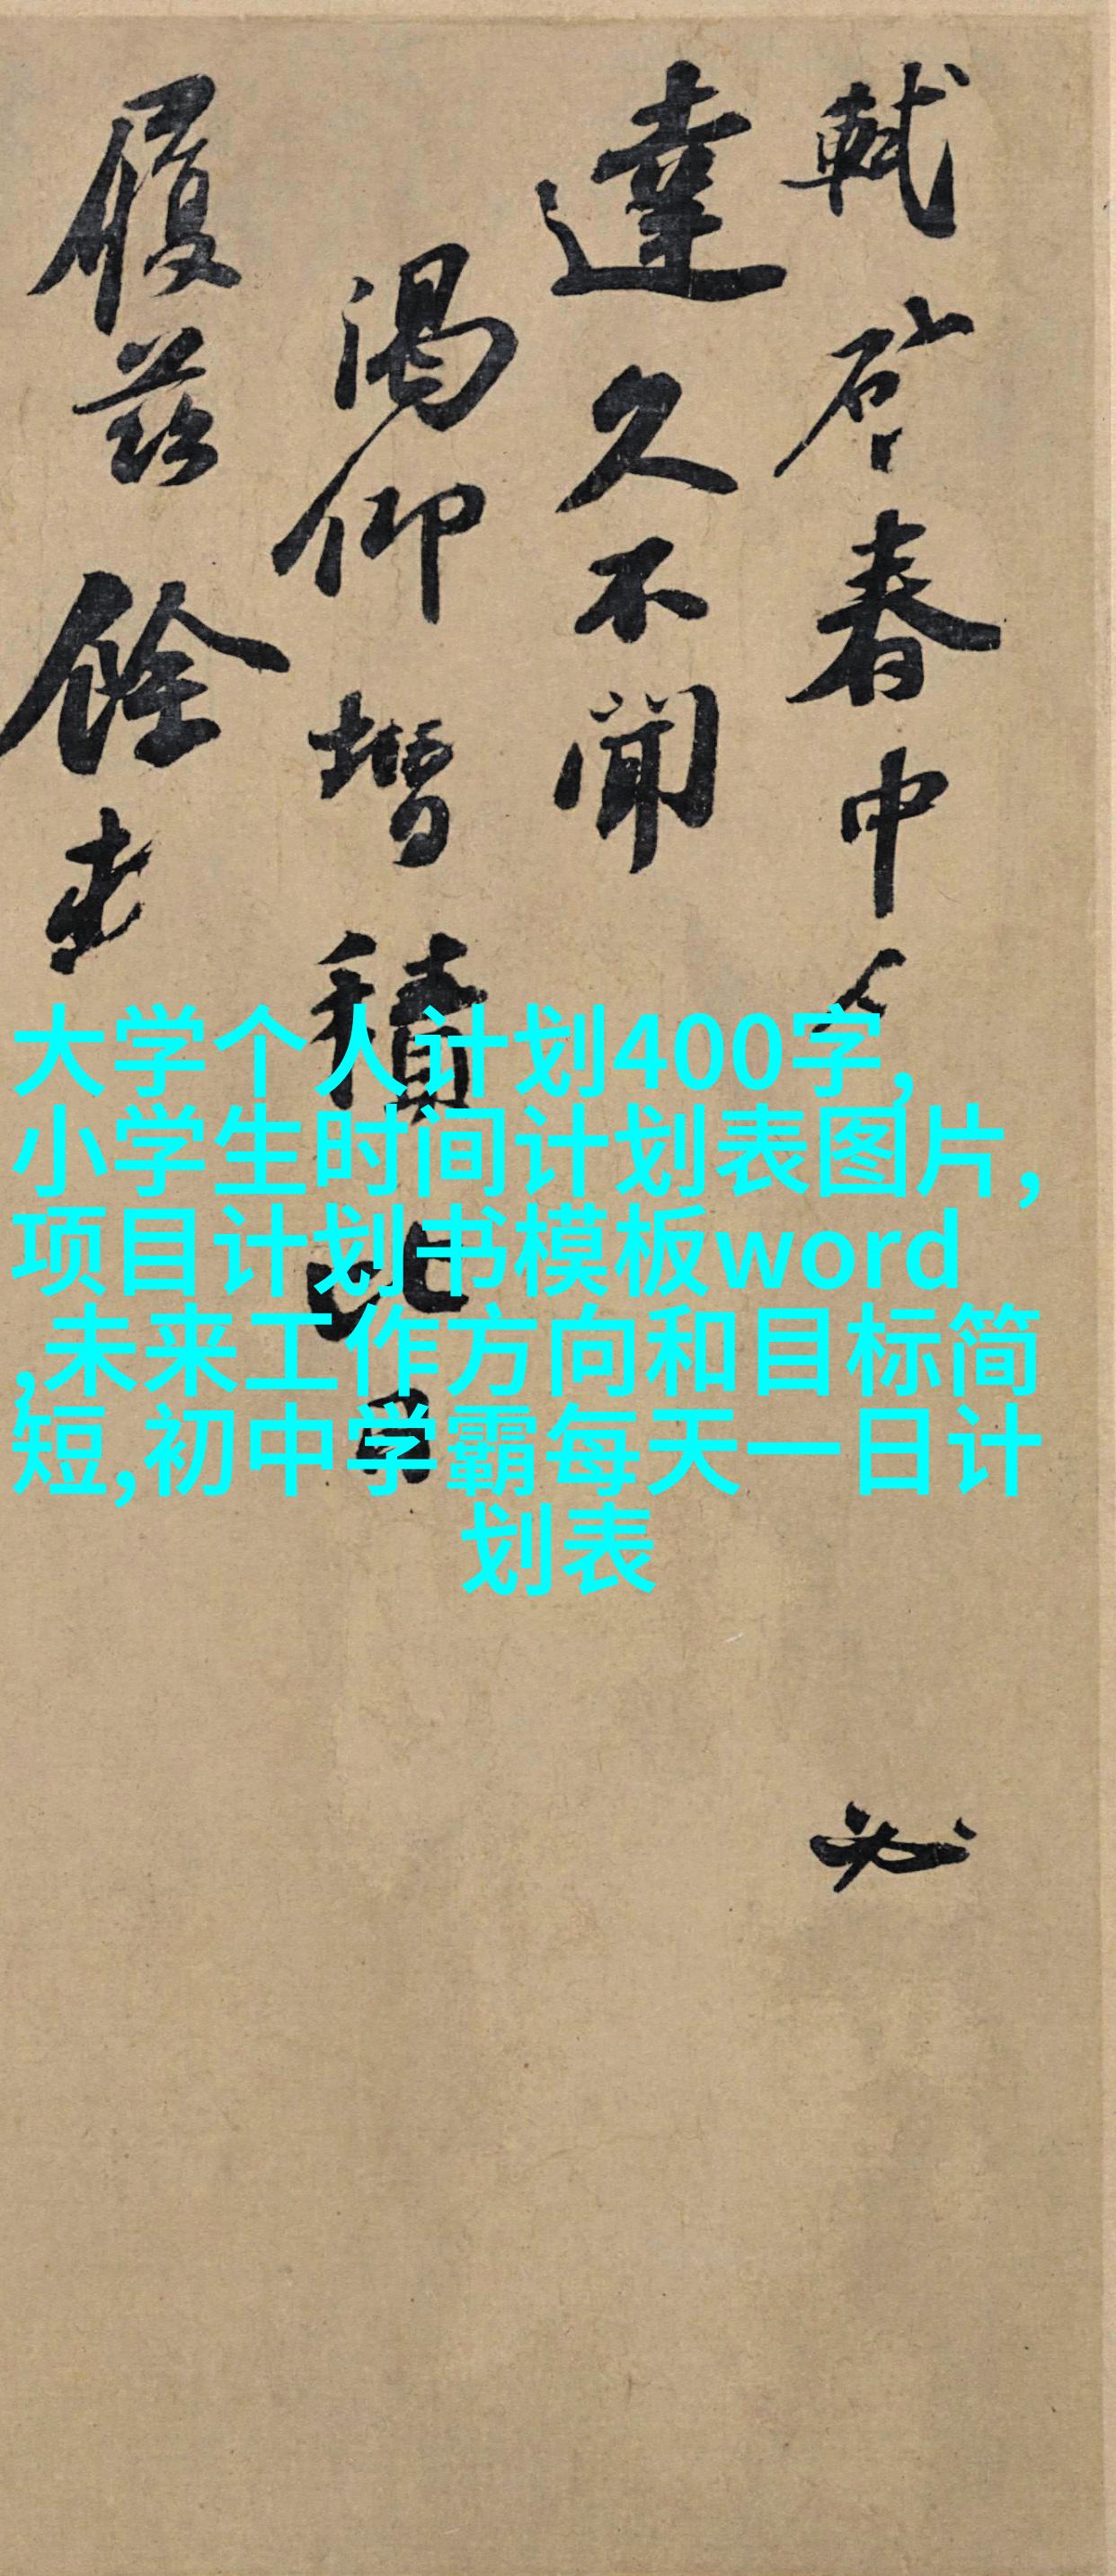 軾啓春中人必
達久不聞
渴仰增積比日
履茲餘
大学个人计划400字,
小学生时间计划表图片,
项目计划书模板word
,未来工作方向和目标简
短,初中学霸每天一日计
划表